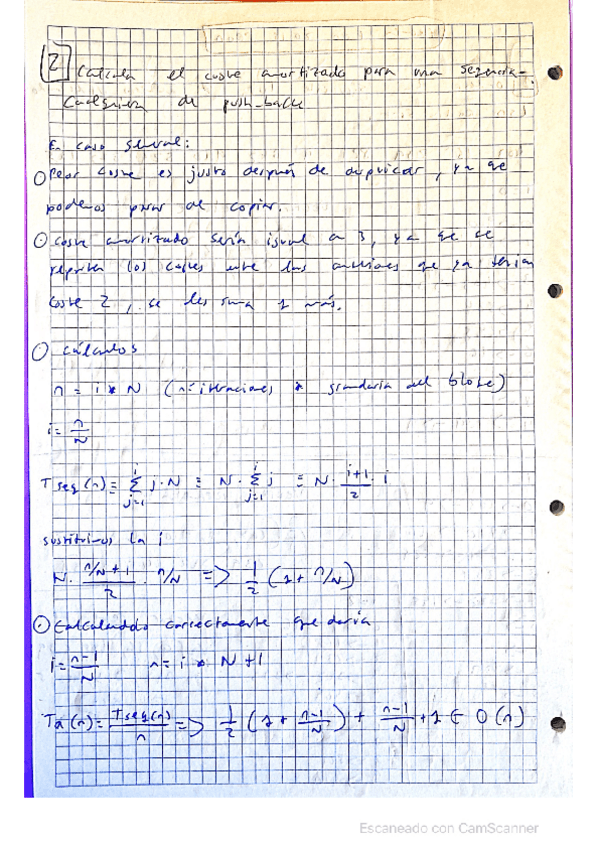 2 Calcula el coste amortizado para una secuencia
cualquiera de push_back
En caso general:
Peor coste es justo después de duplicar, ya que
podemos parar de copiar.
coste amortizado sería igual a 3, ya que se
reparten los costes entre las anteriores que ya tenían
coste 2, se les suma 1 más.
cálculos
n = i * N (nº iteraciones * grandaria del bloke)
i = n/N
Tseq(n) = ∑_{j=1}^{i} j·N = N · ∑_{j=1}^{i} j = N · (i+1)/2 · i
sustituimos la i
N · (n/N + 1)/2 · n/N => 1/2 (1 + n/N)
Calculando correctamente quedaría
i = (n-1)/N n = i * N + 1
Ta(n) = Tseq(n)/n => 1/2 (1 + (n-1)/N) + (n-1)/N + 1 ∈ O(n)
Escaneado con CamScanner